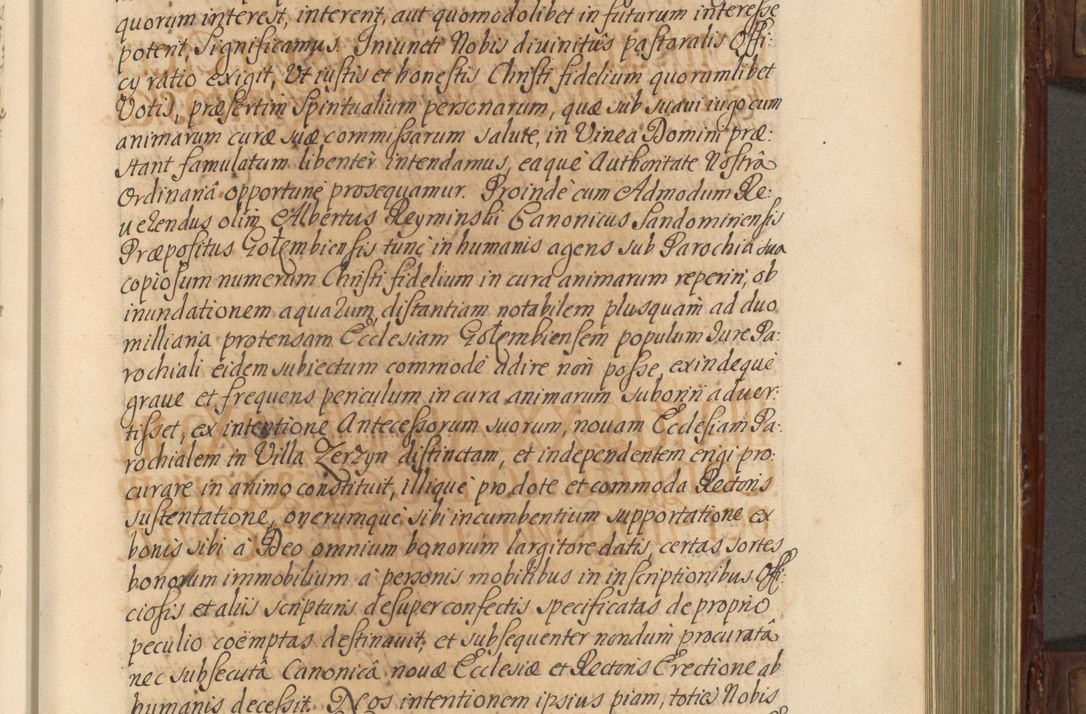 quorum interest, interent, aut quomodolibet in futurum interesse
potent, significamus. Iniuncti Nobis divinitus pastoralis Offi:
cÿ ratio exigit, Ut iustis et honestis Christi fidelium quorumlibet
Votis, præsertim Spiritualium personarum, quæ sub suavi iugo cum
animarum curæ suæ commissarum salute, in Vinea Domini præ:
stant famulatum libenter intendamus, eaque Authoritate Nostrâ
Ordinariâ opportunè prosequamur. Proindè cum Admodum Re:
uerendus olim Albertus Reyminski Canonicus Sandomiriensis
Præpositus Gołembiensis tunc in humanis agens sub Parochia sua
copiosum numerum Christi fidelium in cura animarum reperiri, ob
inundationem aquarum distantiam notabilem plusquam ad duo
milliaria protensam Ecclesiam Gołembiensem populum Iure Pa:
rochiali eidem subiectum commodè adire non posse, exindeque
graue et frequens periculum in cura animarum suboriri aduer:
tisset, ex intentione Antecessorum suorum, nouam Ecclesiam Pa:
rochialem in Villa Zerzyn distinctam, et independentem erigi pro:
curare in animo constituit, illique pro dote et commoda Rectoris
sustentatione, onerumque sibi incumbentium supportatione ex
bonis sibi à Deo omnium bonorum largitore datis, certas sortes
bonorum immobilium a personis mobilibus in inscriptionibus Offi:
ciosis et aliis scripturis desuper confectis specificatas de proprio
peculio coëmptas destinauit, et subsequenter nondum procuratâ
nec subsecutâ Canonicâ nouæ Ecclesiæ et Rectoris Erectione ab
humanis decessit. Nos intentionem ipsius piam, toties Nobis